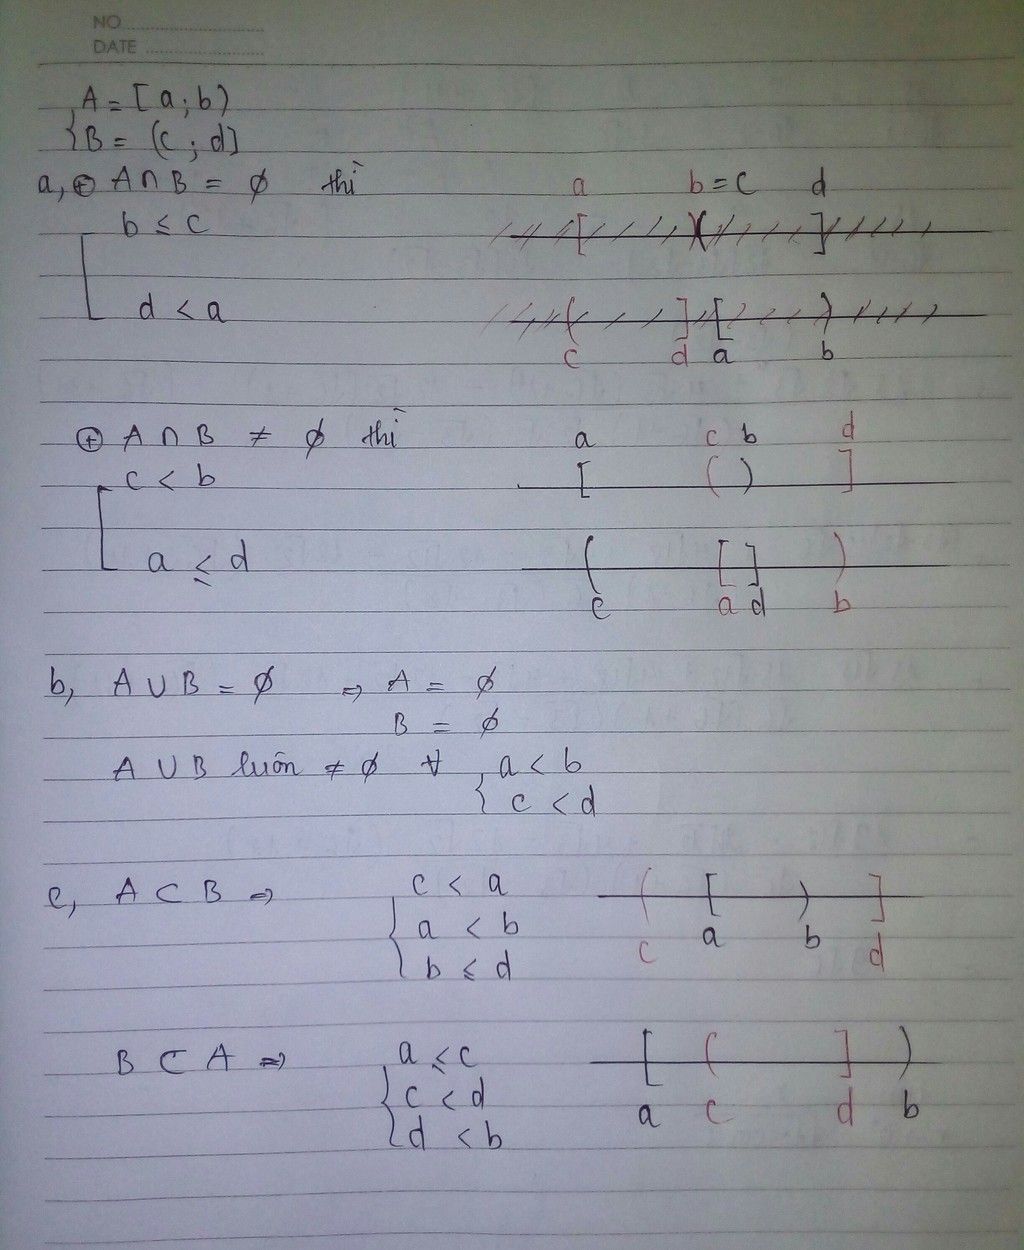 NO
DATE
A = [a; b)
B = (c; d]
a, ⊕ A ∩ B = ∅ thì
a b = c d
b ≤ c
d < a
c d a b
⊕ A ∩ B ≠ ∅ thì
a c b d
c < b
a ≤ d
c a d b
b, A ∪ B = ∅ => A = ∅
B = ∅
A ∪ B luôn ≠ ∅ ∀ a < b
c < d
c, A ⊂ B => c < a
a < b
c a b d
b ≤ d
B ⊂ A => a ≤ c
c < d
a c d b
d < b